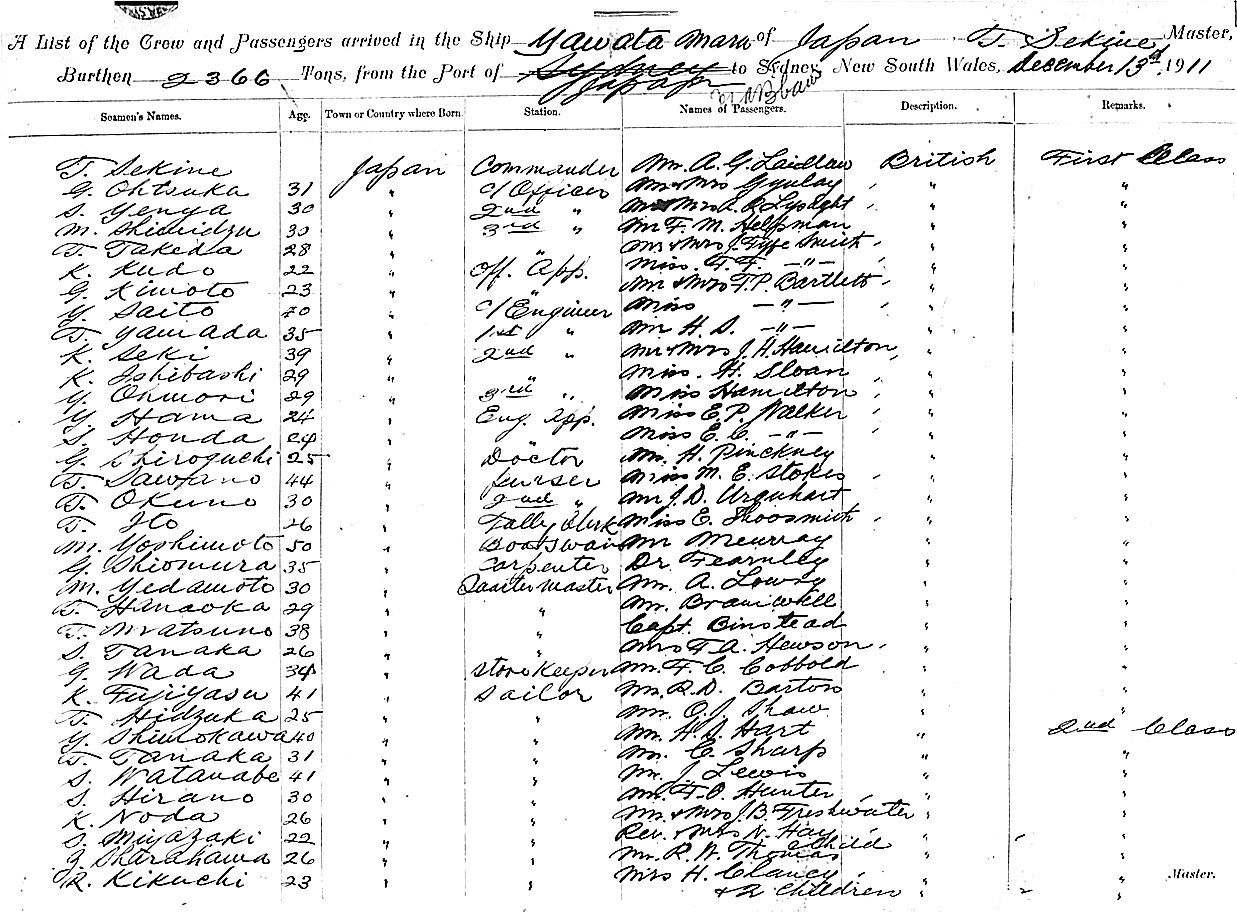 A List of the Crew and Passengers arrived in the Ship Yawata Maru of Japan T. Sekine Master,
Burthen 2366 Tons, from the Port of Sydney Japan to Sydney, New South Wales, December 13th, 1911
Seamen's Names. Age. Town or Country where Born. Station. Names of Passengers. Description. Remarks.
T. Sekine Japan Commander Mr. A. G. Laidlaw British First Class
G. Ohtsuka 31 " C/Officer Mr & Mrs Gyulay " "
S. Yenya 30 " 2nd " Mr & Mrs Lysaght " "
M. Shimidzu 30 " 3rd " Mr F. M. Helpman " "
T. Takeda 28 " " Mr & Mrs J. Fyfe Smith " "
K. Kudo 22 " Off. App. Miss. F. F. —"— " "
G. Kimoto 23 " " Mr & Mrs F. P. Bartlett " "
Y. Saito 40 " C/Engineer Miss —"— " "
T. Yamada 35 " 1st " Mr H. S. —"— " "
K. Seki 39 " 2nd " Mr & Mrs J. H. Hamilton, " "
K. Ishibashi 29 " " Miss. H. Sloan " "
Y. Ohmori 29 " 3rd " Miss Hamilton " "
Y. Hama 24 " Eng. App. Miss E. P. Walker " "
S. Honda 24 " " Miss E. C. —"— " "
G. Shiroguchi 25 " Doctor Mr. H. Pinckney " "
T. Sawano 44 " Purser Miss M. E. Stokes " "
T. Okuno 30 " 2nd " Mr J. D. Urquhart " "
T. Ito 26 " Tally Clerk Miss E. Shoosmith " "
M. Yoshimoto 50 " Boatswain Mr Meurray " "
G. Shiomura 35 " Carpenter Dr. Fearnley " "
M. Yedamoto 30 " Quarter Master Mr. A. Lowry " "
T. Hanaoka 29 " " Mr. Bramwell " "
T. Matsuno 38 " " Capt. Binstead " "
S. Tanaka 26 " " Mrs F. A. Hewson " "
G. Wada 34 " Storekeeper Mr. F. C. Cobbold " "
K. Fujiyasu 41 " Sailor Mr. R. D. Barton " "
T. Hidzuka 25 " " Mr. O. J. Shaw " "
Y. Shimokawa 40 " " Mr. H. S. Hart " 2nd Class
T. Tanaka 31 " " Mr. C. Sharp " "
S. Watanabe 41 " " Mr. J. Lewis " "
S. Hirano 30 " " Mr. F. O. Hunter " "
K. Noda 26 " " Mr. & Mrs J. B. Freshwater " "
S. Miyazaki 22 " " Rev. & Mrs N. Hay " "
Child
J. Sharahama 26 " " Mr. R. W. Thomas " "
R. Kikuchi 23 " " Mrs H. Clancy " " Master.
+ 2 Children " "